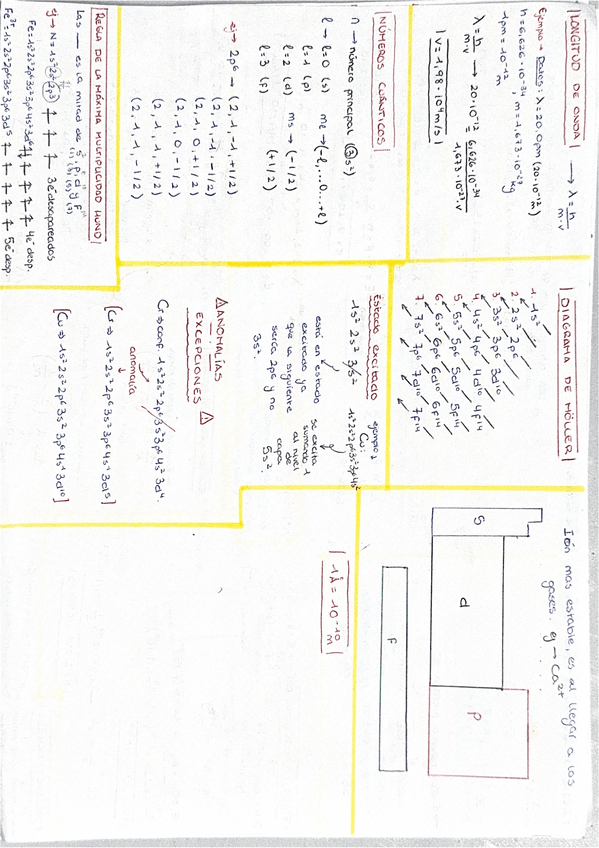 LONGITUD DE ONDA → λ = h / m·v
Ejemplo → Datos: λ = 20,0 pm (20·10⁻¹² m)
h = 6,626·10⁻³⁴, m = 1,673·10⁻²⁷ kg
1pm = 10⁻¹² m
λ = h / m·v → 20·10⁻¹² = 6,626·10⁻³⁴ / 1,673·10⁻²⁷·v
v = 1,98·10⁴ m/s
NÚMEROS CUÁNTICOS
n → número principal (3s²)
l → l=0 (s) ml → (-l,...0...+l)
l=1 (p)
l=2 (d) ms → (-1/2)
l=3 (f) (+1/2)
ej → 2p⁶ → (2,1,-1,+1/2)
(2,1,-1,-1/2)
(2,1,0,+1/2)
(2,1,0,-1/2)
(2,1,1,+1/2)
(2,1,1,-1/2)
REGLA DE LA MÁXIMA MULTIPLICIDAD HUND
Las — es la mitad de s, p, d y f
(1) (3) (5) (7)
ej → N = 1s² 2s² 2p3 3e⁻ desapareados
Fe = 1s² 2s² 2p⁶ 3s² 3p⁶ 4s² 3d⁶ 4e⁻ desp.
Fe³⁺: 1s² 2s² 2p⁶ 3s² 3p⁶ 3d⁵ 5e⁻ desp.
DIAGRAMA DE MÖLLER
1. 1s²
2. 2s² 2p⁶
3. 3s² 3p⁶ 3d¹⁰
4. 4s² 4p⁶ 4d¹⁰ 4f¹⁴
5. 5s² 5p⁶ 5d¹⁰ 5f¹⁴
6. 6s² 6p⁶ 6d¹⁰ 6f¹⁴
7. 7s² 7p⁶ 7d¹⁰ 7f¹⁴
Estado excitado
1s² 2s² 3s²
está en estado
excitado ya
que la siguiente
sería 2p⁶ y no
3s².
ejemplo 2
Cu:
1s² 2s² 2p⁶ 3s² 3p⁶ 4s²
se excita
sumando 1
al nivel
de
capa
5s².
⚠ANOMALÍAS
EXCEPCIONES ⚠
Cr ⇒ conf. 1s² 2s² 2p⁶ 3s² 3p⁶ 4s² 3d⁴.
anomalía
(Cr ⇒ 1s² 2s² 2p⁶ 3s² 3p⁶ 4s¹ 3d⁵)
[Cu ⇒ 1s² 2s² 2p⁶ 3s² 3p⁶ 4s¹ 3d¹⁰]
Ión mas estable, es al llegar a los
gases. ej → Ca²⁺
S
d
p
F
1Å = 10⁻¹⁰ m